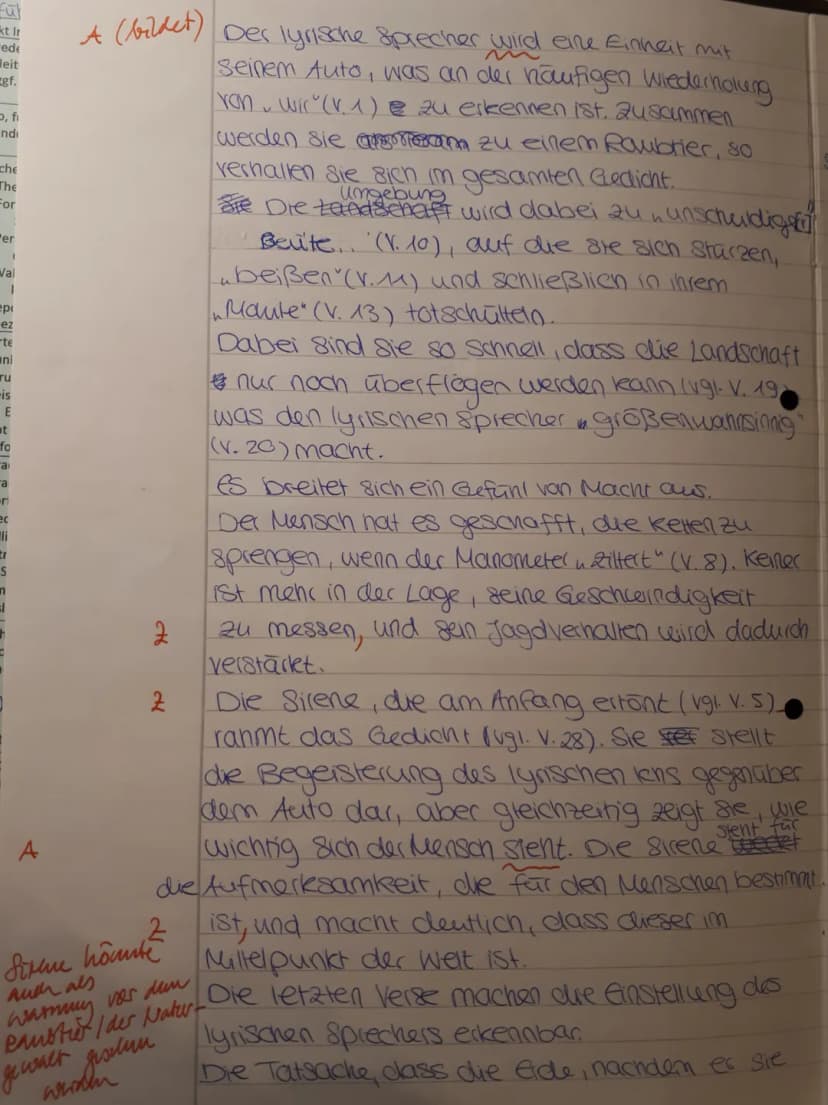 A (bildet) Der lyrische Sprecher wird eine Einheit mit
seinem Auto, was an der häufigen Wiederholung
von „wir“ (V. 1) zu erkennen ist. Zusammen
werden sie zu einem Raubtier, so
verhalten sie sich im gesamten Gedicht.
Die Umgebung wird dabei zu „unschuldige[r]
Beute..“ (V. 10), auf die sie sich stürzen,
„beißen“ (V. 11) und schließlich in ihrem
„Maule“ (V. 13) totschütteln.
Dabei sind sie so schnell, dass die Landschaft
nur noch überflogen werden kann (vgl. V. 19
was den lyrischen Sprecher „größenwahnsinnig“
(V. 20) macht.
Es breitet sich ein Gefühl von Macht aus.
Der Mensch hat es geschafft, die Ketten zu
sprengen, wenn der Manometer „zittert“ (V. 8). Keiner
ist mehr in der Lage, seine Geschwindigkeit
Z zu messen, und sein Jagdverhalten wird dadurch
verstärkt.
Z Die Sirene, die am Anfang ertönt (vgl. V. 5)
rahmt das Gedicht (vgl. V. 28). Sie stellt
die Begeisterung des lyrischen Ichs gegenüber
dem Auto dar, aber gleichzeitig zeigt sie, wie
A wichtig sich der Mensch sieht. Die Sirene steht für
die Aufmerksamkeit, die für den Menschen bestimmt
Z ist, und macht deutlich, dass dieser im
Mittelpunkt der Welt ist.
Die letzten Verse machen die Einstellung des
lyrischen Sprechers erkennbar.
Die Tatsache, dass die Erde, nachdem er sie
Sirene könnte
auch als
Warnung vor dem
Raubtier / der Natur-
gewalt gesehen
werden